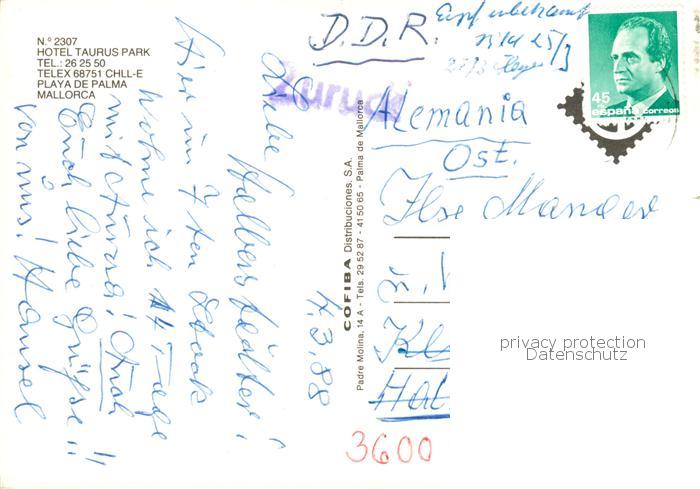 N.º 2307
HOTEL TAURUS PARK
TEL.: 26 25 50
TELEX 68751 CHLL-E
PLAYA DE PALMA
MALLORCA
4.3.88
Liebe Halberstädter!
Hier im 7ten Stock
wohne ich 14 Tage
mit
Euch liebe Grüße!!
von uns! Hansel
COFIBA Distribuciones, S.A.
Padre Molina, 14 A - Tels. 29 52 87 - 41 50 65 - Palma de Mallorca
D.D.R.
Zurück
45
españa correos
Alemania
Ost.
Ilse Mander
u.
Hal
3600
privacy protection
Datenschutz